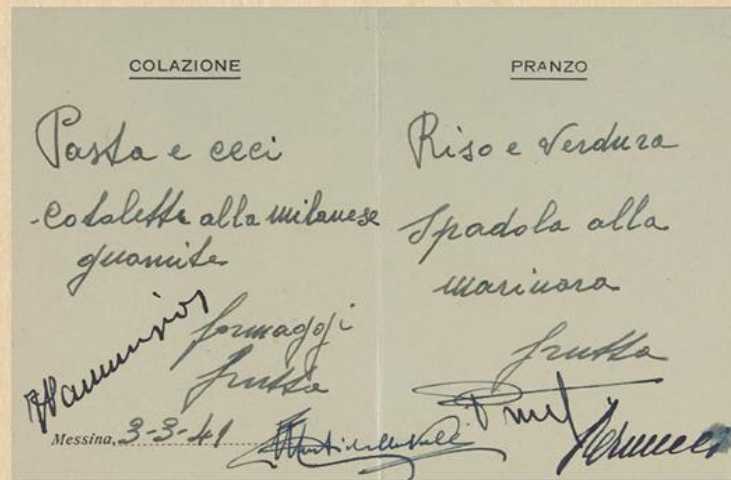 COLAZIONE
Pasta e ceci
Cotalette alla milanese
guarnite
formaggi
frutta
Messina, 3-3-41
PRANZO
Riso e verdura
Spadola alla
marinara
frutta